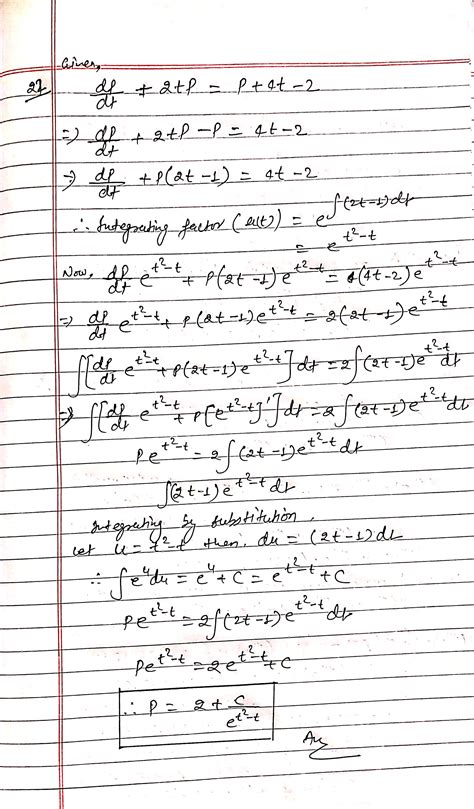 Given,
27 dP/dt + 2tP = P + 4t - 2
=> dP/dt + 2tP - P = 4t - 2
=> dP/dt + P(2t - 1) = 4t - 2
∴ Integrating factor (u(t)) = e^∫(2t-1)dt
= e^(t²-t)
Now, dP/dt e^(t²-t) + P(2t-1)e^(t²-t) = (4t-2)e^(t²-t)
=> dP/dt e^(t²-t) + P(2t-1)e^(t²-t) = 2(2t-1)e^(t²-t)
∫[dP/dt e^(t²-t) + P(2t-1)e^(t²-t)]dt = 2∫(2t-1)e^(t²-t) dt
=> ∫[dP/dt e^(t²-t) + P[e^(t²-t)]']dt = 2∫(2t-1)e^(t²-t) dt
Pe^(t²-t) = 2∫(2t-1)e^(t²-t) dt
∫(2t-1)e^(t²-t) dt
Integrating by substitution,
let u = t²-t then, du = (2t-1)dt
∴ ∫e^u du = e^u + C = e^(t²-t) + C
Pe^(t²-t) = 2∫(2t-1)e^(t²-t) dt
Pe^(t²-t) = 2e^(t²-t) + C
∴ P = 2 + C/e^(t²-t)
Ans